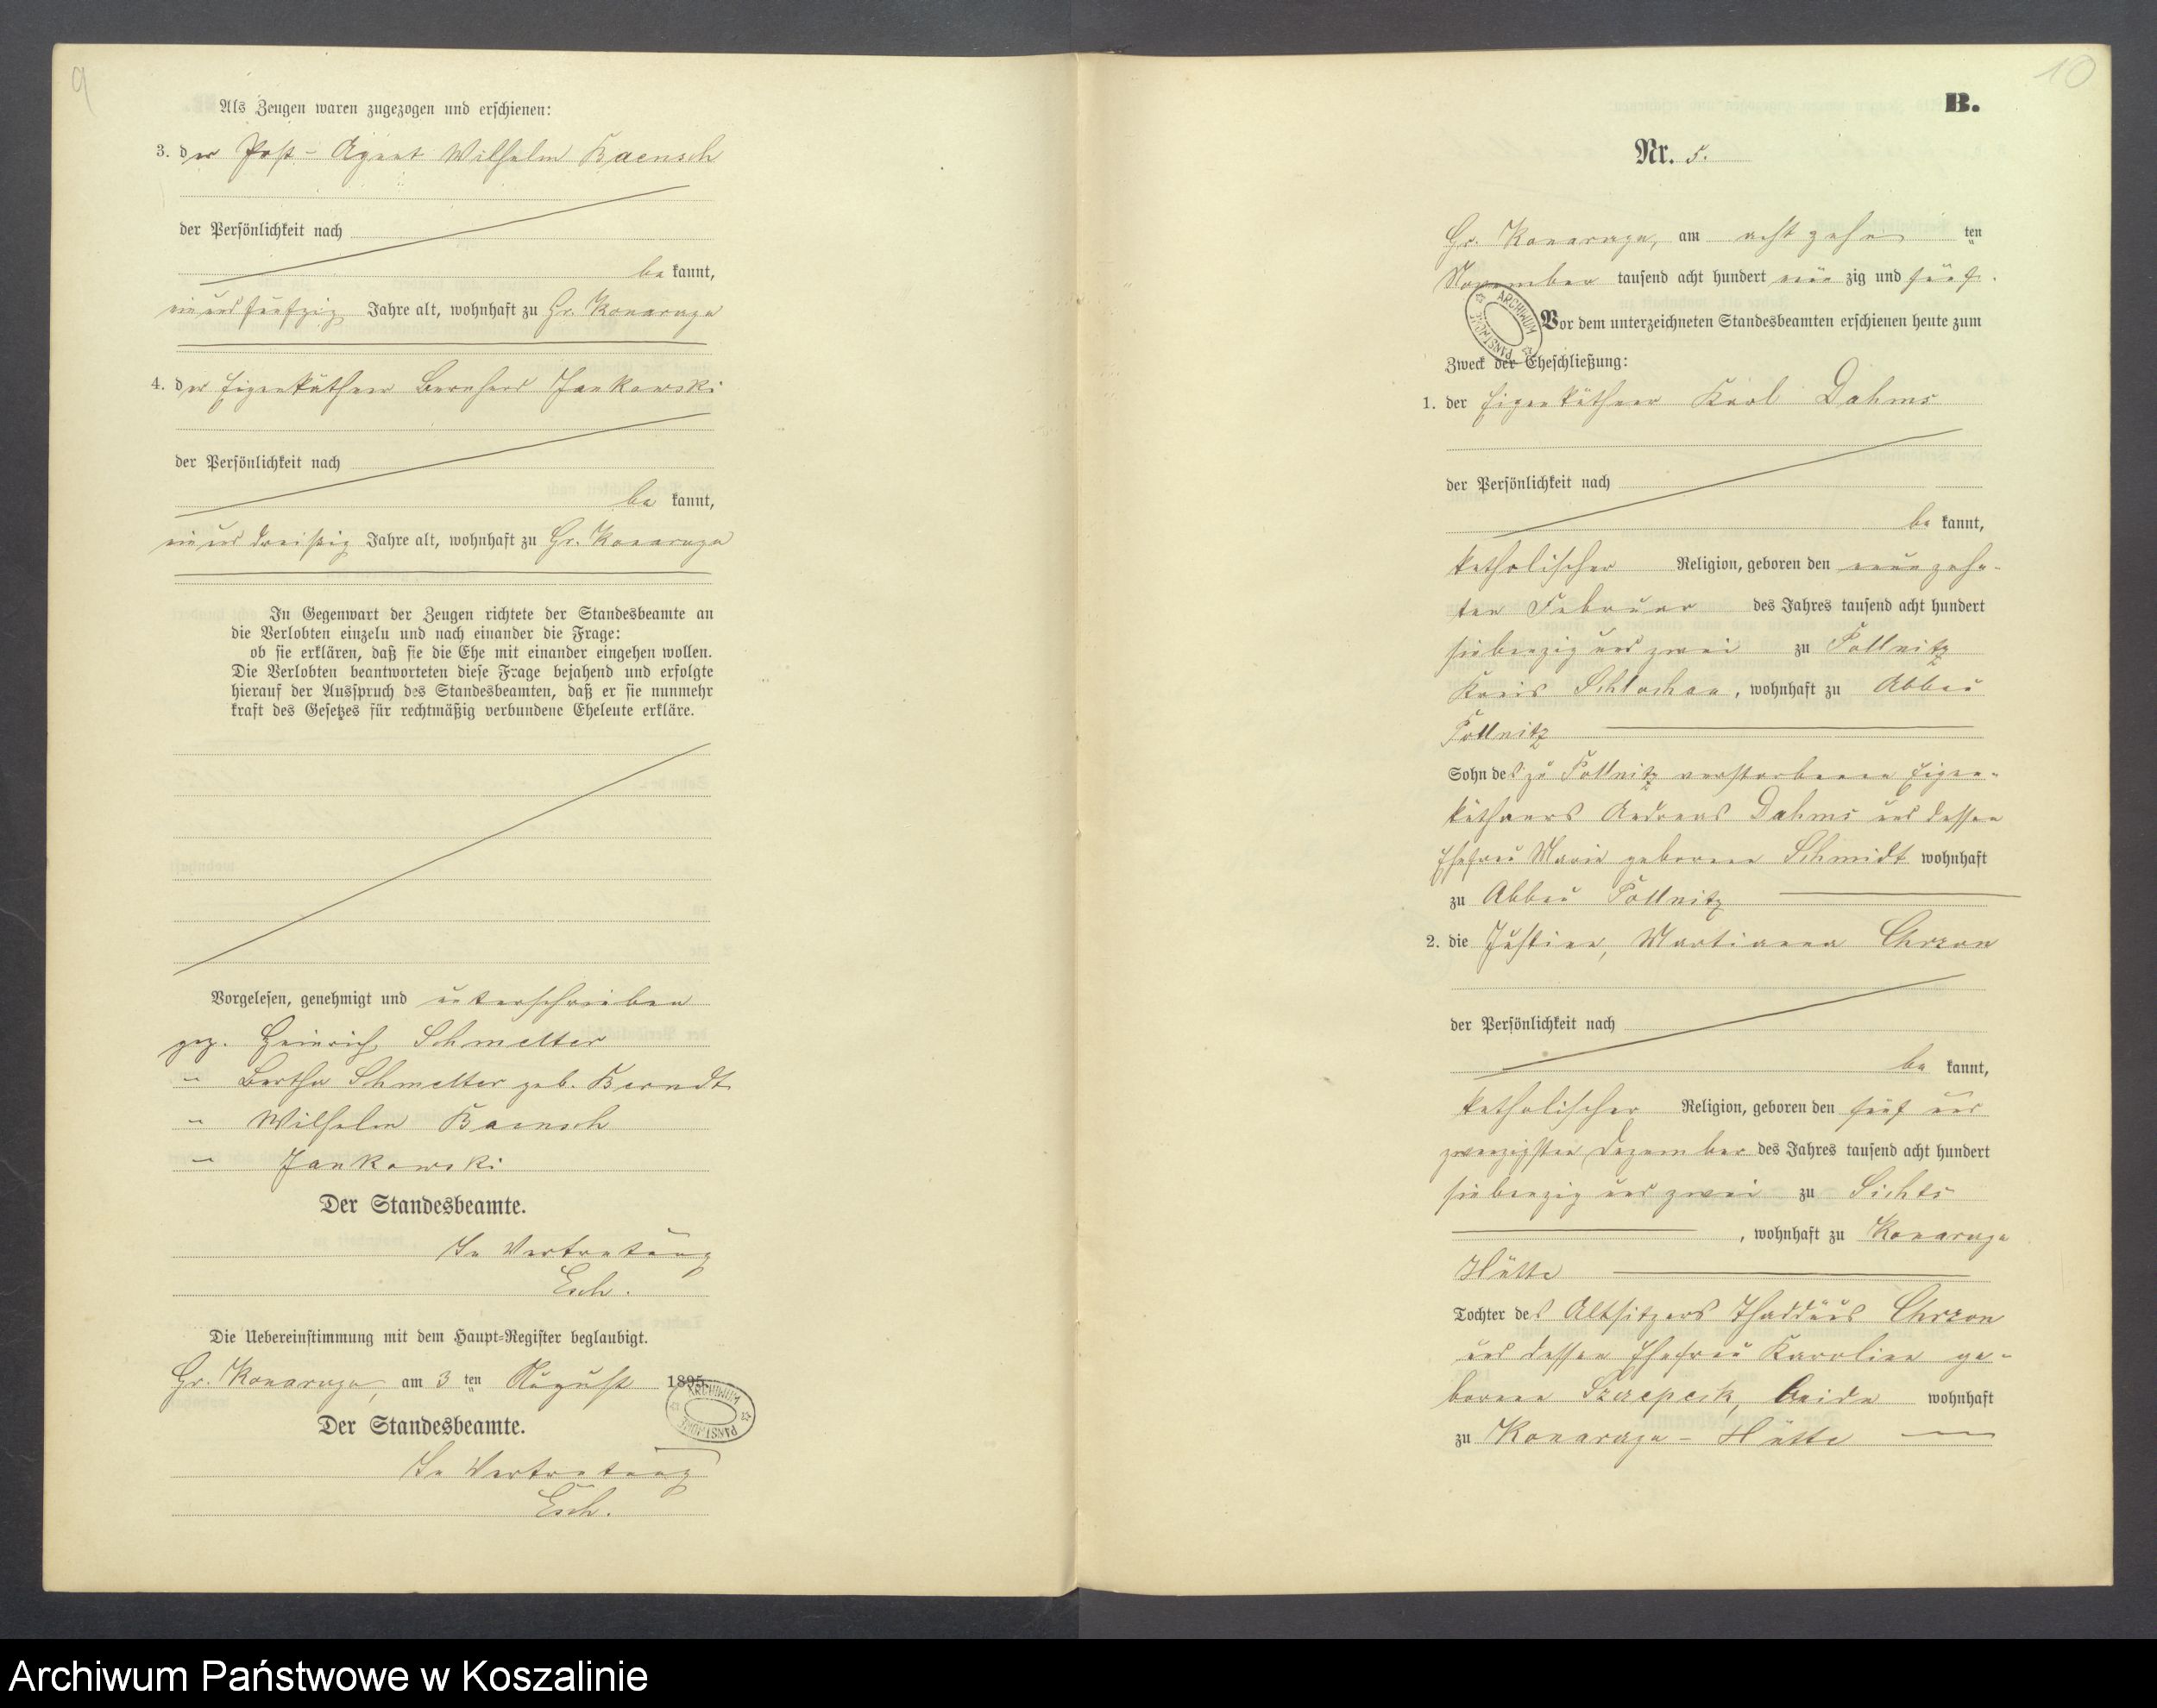 9
Als Zeugen waren zugezogen und erschienen:
3. der Post-Agent Wilhelm Baensch
der Persönlichkeit nach
be kannt,
ein und fünfzig Jahre alt, wohnhaft zu Gr. Konarczyn
4. der Eigenkäthner Bernhard Jankowski
der Persönlichkeit nach
be kannt,
ein und dreißig Jahre alt, wohnhaft zu Gr. Konarczyn
In Gegenwart der Zeugen richtete der Standesbeamte an
die Verlobten einzeln und nach einander die Frage:
ob sie erklären, daß sie die Ehe mit einander eingehen wollen.
Die Verlobten beantworteten diese Frage bejahend und erfolgte
hierauf der Ausspruch des Standesbeamten, daß er sie nunmehr
kraft des Gesetzes für rechtmäßig verbundene Eheleute erkläre.
Vorgelesen, genehmigt und unterschrieben
gez. Heinrich Schmelter
" Bertha Schmelter geb. Berndt
" Wilhelm Baensch
" Jankowski
Der Standesbeamte.
In Vertretung
Esch.
Die Uebereinstimmung mit dem Haupt-Register beglaubigt.
Gr. Konarczyn, am 3 ten August 1895
Der Standesbeamte.
In Vertretung
Esch.
ARCHIWUM PAŃSTWOWE
10
B.
Nr. 5.
Gr. Konarczyn, am acht zehn ten
November tausend acht hundert neun zig und fünf.
ARCHIWUM PAŃSTWOWE
Vor dem unterzeichneten Standesbeamten erschienen heute zum
Zweck der Eheschließung:
1. der Eigenkäthner Karl Dahms
der Persönlichkeit nach
be kannt,
katholischer Religion, geboren den neunzehn-
ten Februar des Jahres tausend acht hundert
siebenzig und zwei zu Pollnitz
Kreis Schlochau, wohnhaft zu Abbau
Pollnitz
Sohn des zu Pollnitz verstorbenen Eigen-
käthners Andreas Dahms und dessen
Ehefrau Marie geborene Schmidt wohnhaft
zu Abbau Pollnitz
2. die Justine, Martianna Chrzon
der Persönlichkeit nach
be kannt,
katholischer Religion, geboren den fünf und
zwanzigsten Dezember des Jahres tausend acht hundert
siebenzig und zwei zu Sichts
, wohnhaft zu Konarczyn
Hütte
Tochter des Altsitzers Thaddäus Chrzon
und dessen Ehefrau Karoline ge-
borene beide wohnhaft
zu Konarczyn-Hütte
Archiwum Państwowe w Koszalinie